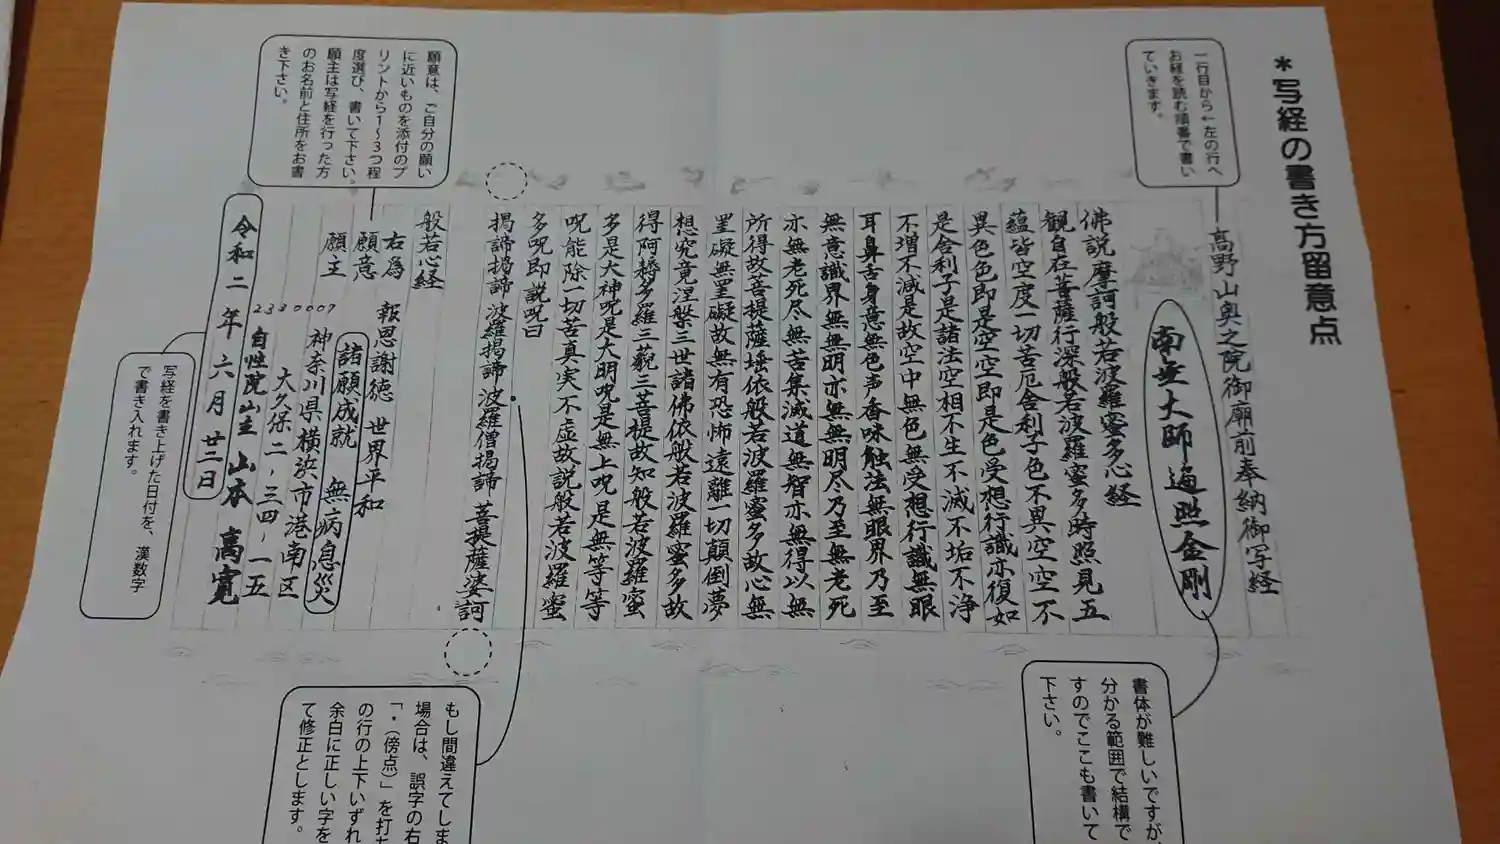 ＊写経の書き方留意点
一行目から←左の行へ
お経を読む順番で書い
ていきます。
高野山奥之院御廟前奉納御写経
南無大師遍照金剛
書体が難しいですが、
分かる範囲で結構で
すのでここも書いて
下さい。
佛説摩訶般若波羅蜜多心経
観自在菩薩行深般若波羅蜜多時照見五
蘊皆空度一切苦厄舎利子色不異空空不
異色色即是空空即是色受想行識亦復如
是舎利子是諸法空相不生不滅不垢不浄
不増不減是故空中無色無受想行識無眼
耳鼻舌身意無色声香味触法無眼界乃至
無意識界無無明亦無無明尽乃至無老死
亦無老死尽無苦集滅道無智亦無得以無
所得故菩提薩埵依般若波羅蜜多故心無
罣礙無罣礙故無有恐怖遠離一切顛倒夢
想究竟涅槃三世諸佛依般若波羅蜜多故
得阿耨多羅三藐三菩提故知般若波羅蜜
多是大神呪是大明呪是無上呪是無等等
呪能除一切苦真実不虚故説般若波羅蜜
多呪即説呪曰
掲諦掲諦 波羅掲諦 波羅僧掲諦 菩提薩婆訶
もし間違えてしま
場合は、誤字の右
「・(傍点)」を打ち
の行の上下いずれ
余白に正しい字を
て修正とします。
般若心経
願意は、ご自分の願い
に近いものを添付のプ
リントから1〜3つ程
度選び、書いて下さい。
願主は写経を行った方
のお名前と住所をお書
き下さい。
右為 報恩謝徳 世界平和
願意 諸願成就 無病息災
願主 神奈川県横浜市港南区
2330007
大久保二-三四-一五
自性院山主 山本 高寛
令和二年六月廿二日
写経を書き上げた日付を、漢数字
で書き入れます。